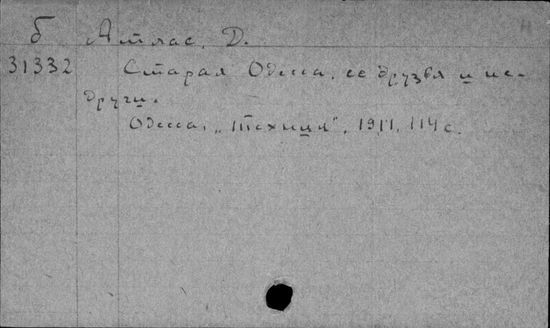 б Атлас, Д.
31332 Старая Одесса, ее друзья и не-
други.
Одесса, „Техник", 1911. 114 с.